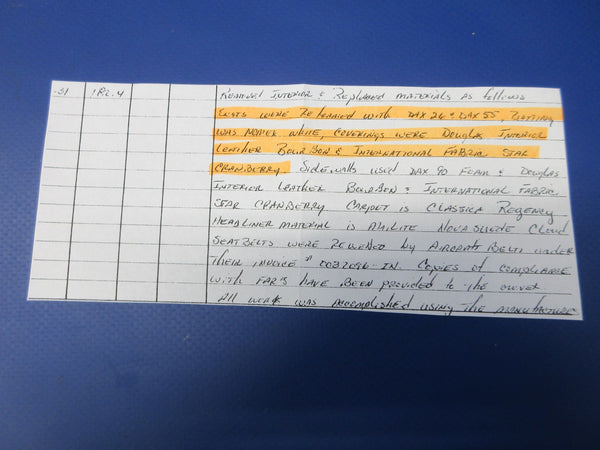 .51 1812.4 Removed Interior & Replaced materials as follows
Seats were Refoamed with DAX 26 & DAX 55, Batting
was Nomex white, coverings were Douglas Interior
Leather Bourbon & International Fabric Star
Cranberry. Sidewalls used DAX 90 Foam & Douglas
Interior Leather Bourbon & International Fabric
Star Cranberry Carpet is Classica Regency
Headliner material is Ailite Novasuede Cloud
Seatbelts were Rewebbed by Aircraft Belts under
their invoice # 0032096-IN. Copies of compliance
with FAR's have been provided to the owner
All work was accomplished using the manufacture